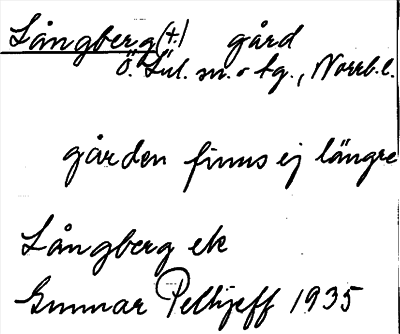 Långberg (+) gård
Ö. Lul. sn. o tg., Norrb. l.
gården finns ej längre
Långberg ek
Gunnar Pellijeff 1935